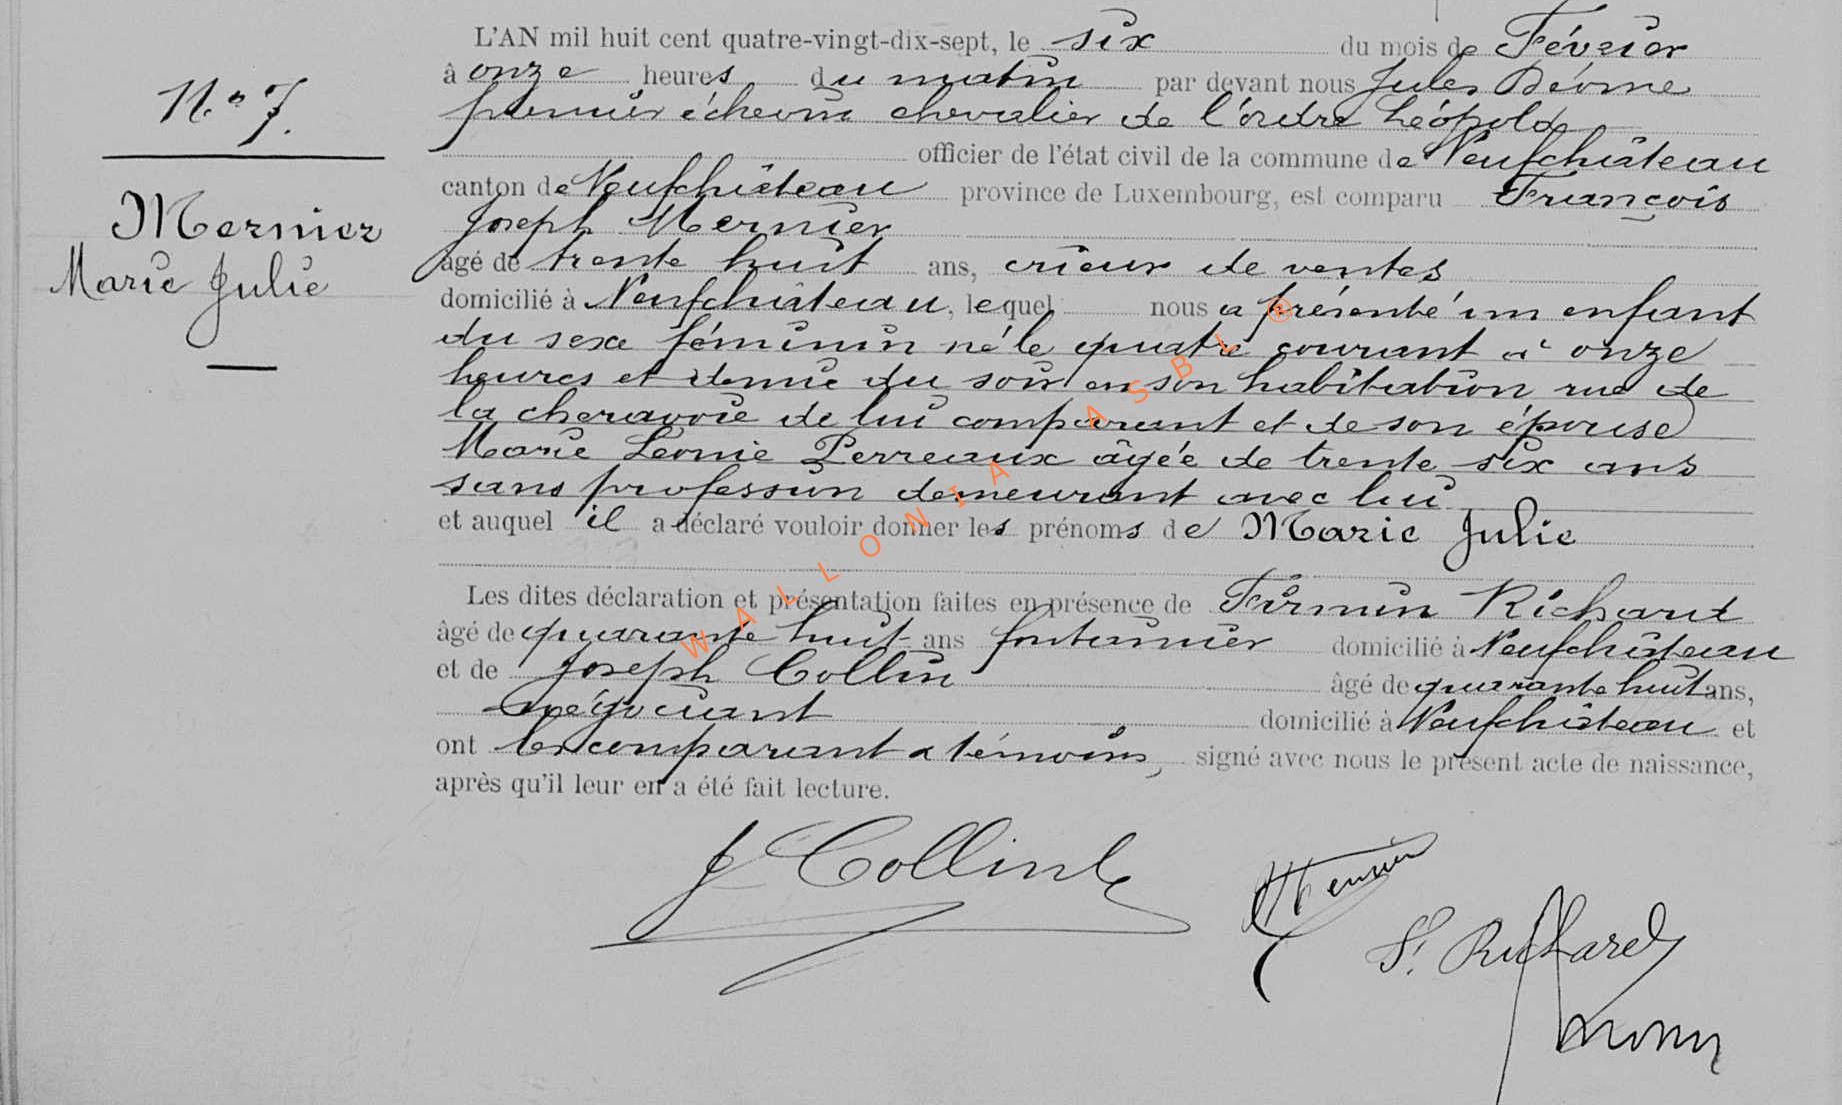 L'AN mil huit cent quatre-vingt-dix-sept, le six du mois de Février
à onze heures du matin par devant nous Jules
premier échevin chevalier de l'ordre Léopold
officier de l'état civil de la commune de Neufchâteau
canton de Neufchâteau province de Luxembourg, est comparu François
Joseph Mernier
âgé de trente huit ans, crieur de ventes
domicilié à Neufchâteau, lequel nous a présenté un enfant
du sexe féminin né le quatre courant à onze
heures et demie du soir en son habitation rue de
la de lui comparant et de son épouse
Marie Léonie Perreaux âgée de trente six ans
sans profession demeurant avec lui
et auquel il a déclaré vouloir donner les prénoms de Marie Julie
Les dites déclaration et présentation faites en présence de Firmin Richard
âgé de quarante huit ans fontainier domicilié à Neufchâteau
et de Joseph Collin âgé de quarante huit ans,
négociant domicilié à Neufchâteau et
ont les comparant & témoins, signé avec nous le présent acte de naissance,
après qu'il leur en a été fait lecture.
N.º 7.
Mernier
Marie Julie
J Collin
Mernier
F. Richard
WALLONIA ASBL ®